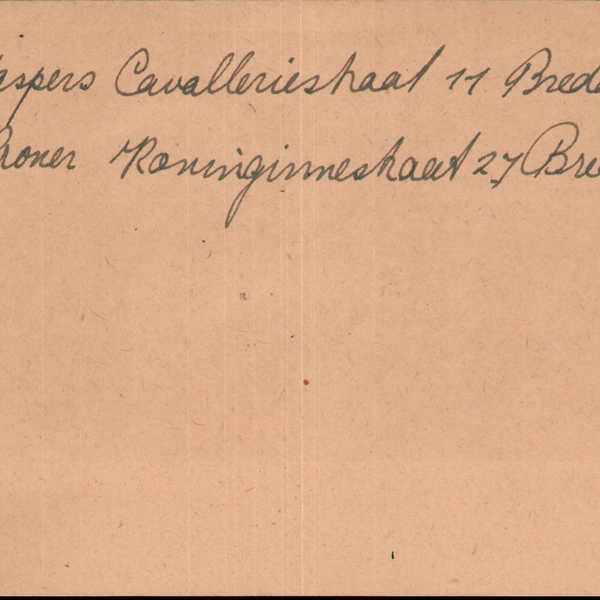 aspers Cavalleriestraat 11 Breda
roner Koninginnestraat 27 Bre